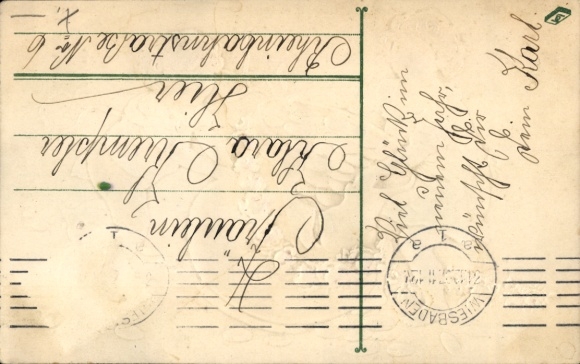 Viel Glück im
neuen Jahr,
wünscht Dir
Dein Karl.
An
Fräulein
Klara Krempler
Hier
Rheinbahnstraße No 6
WIESBADEN